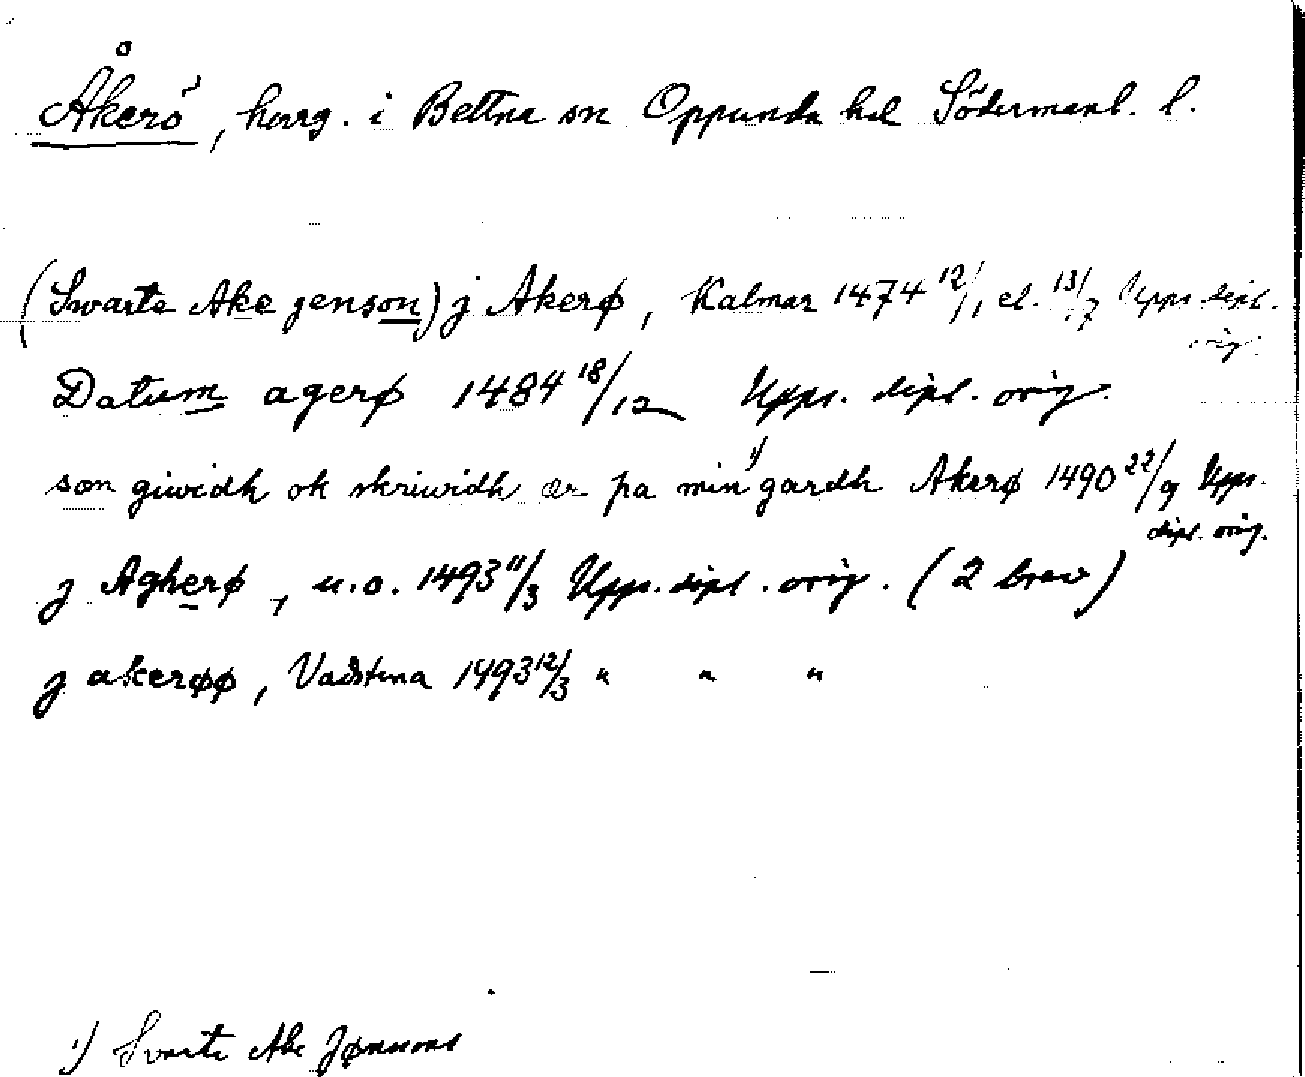 Åkerö, herrg. i Bettna sn Oppunda hd Södermanl. l.
(Swarte Ake jenson) j Akerø, Kalmar 1474 12/1, el. 13/7 Upps. dipl.
orig.
Datum agerø 1484 18/12 Upps. dipl. orig.
som giwidh ok skriwidh ær pa min 1) gardh Akerø 1490 22/9 Upps.
dipl. orig.
j Agherø, u.o. 1493 11/3 Upps. dipl. orig. (2 brev)
j akerøø, Vadstena 1493 12/3 " " "
1) Svarte Ake Jønssons